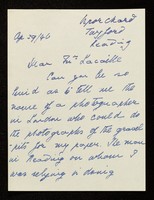 Orchard
Twyford
Reading
Ap. 29/40
Dear Mr Lacaille
Can you be so
kind as to tell me the
name of a photographer
in London who could do
the photographs of the gravel
pits for my paper. The man
in Reading on whom I
was relying is doing